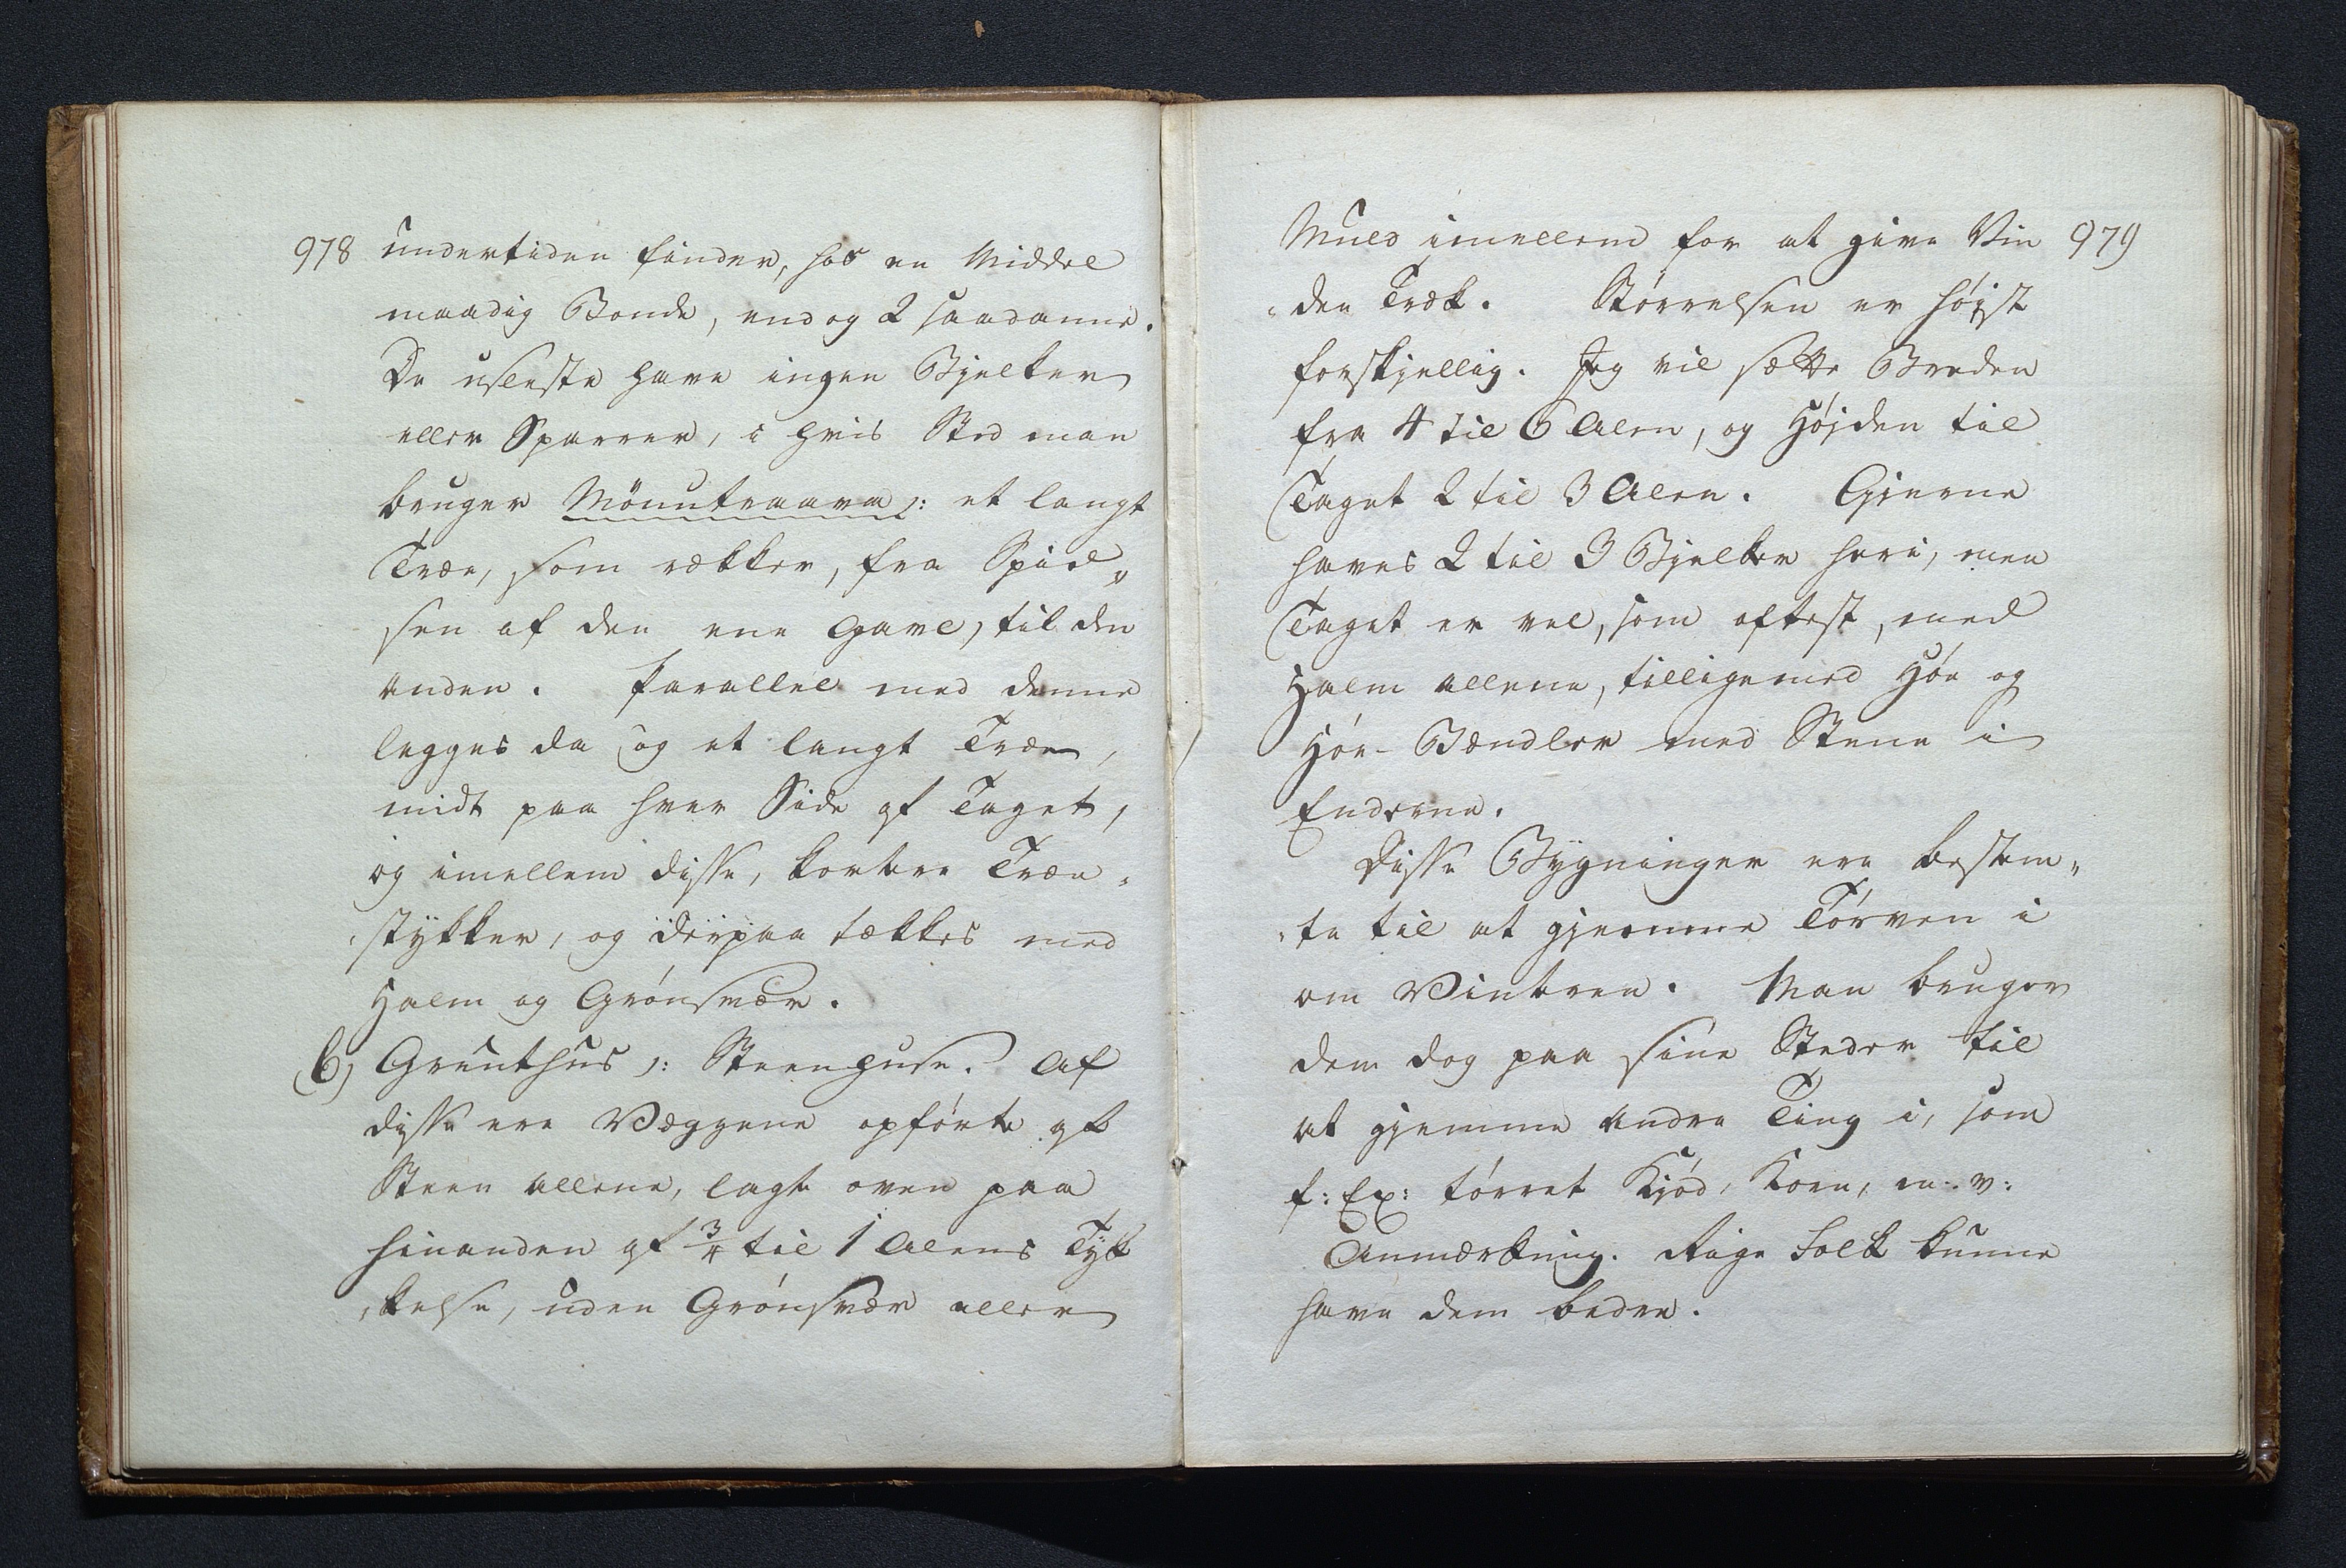 978
undertiden finder, hos en Middel
maadig Bonde, endog 2 saadanne.
De usleste have ingen Bjelker
eller Sparrer, i hvis Sted man
bruger Mönutraava ɔ: et langt
Træe, som rækker, fra Spid„
sen af den ene Gavl, til den
anden. Parallel med denne
legges da og et langt Træe,
midt paa hver Side af Taget,
og imellem disse, kortere Træe„
„stykker, og derpaa tækkes med
Halm og Grónsvær.
b) Grünthüs ɔ: Steenhuse. Af
disse ere Væggene opfórte af
Steen allene, lagt oven paa
hinanden af 3/4 til 1 Alens Tyk
„kelse, uden Grónsvær eller
979
Muld imellem for at give Vin
„den Træk. Stórrelsen er hójst
forskjellig. Jeg vil sætte Breden
fra 4 til 6 Alen, og Hójden til
Taget 2 til 3 Alen. Gjerne
haves 2 til 3 Bjelker heri, men
Taget er vel, som oftest, med
Halm allene, tilligemed Hóe og
Hóe-Bændler med Stene i
Enderne.
Disse Bygninger ere bestem„
„te til at gjemme Tórven i
om Vinteren. Man bruger
dem dog paa sine Steder til
at gjemme andre Ting i, som
f: Ex: tórret Kjód, Korn, m. v:
Anmærkning. Rige Folk kunne
have dem bedre.